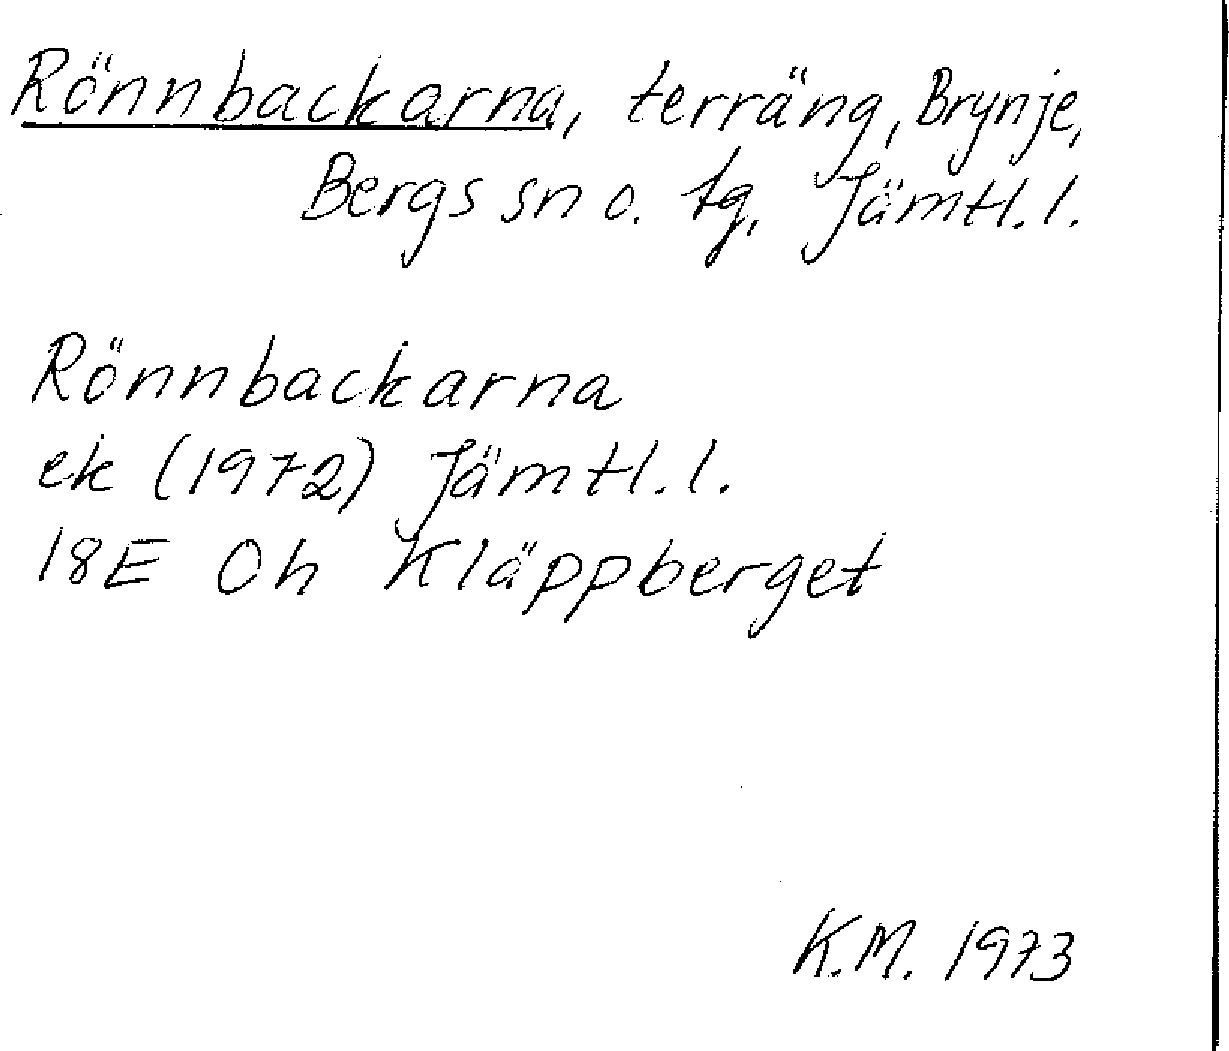 Rönnbackarna, terräng, Brynje,
Bergs sn o. tg, Jämtl. l.
Rönnbackarna
ek (1972) Jämtl. l.
18E 0h Kläppberget
K.M. 1973